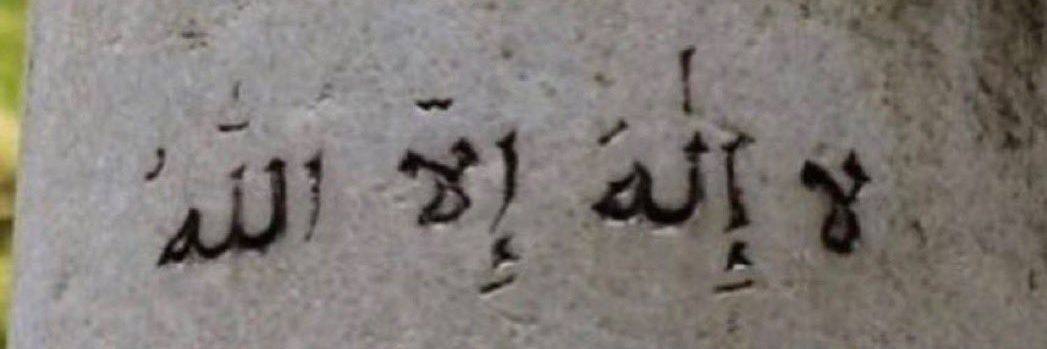 لا إِلٰهَ إِلَّا اللّٰهُ